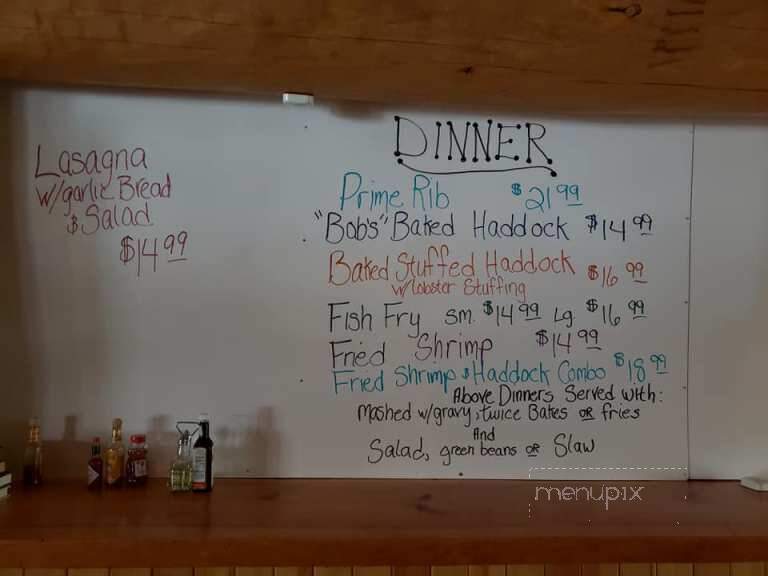 Lasagna
w/garlic Bread
& Salad
$14.99
DINNER
Prime Rib $21.99
"Bob's" Baked Haddock $14.99
Baked Stuffed Haddock $16.99
w/lobster Stuffing
Fish Fry sm. $14.99 Lg. $16.99
Fried Shrimp $14.99
Fried Shrimp & Haddock Combo $18.99
Above Dinners Served with:
mashed w/gravy, twice Bakes or fries
And
Salad, green beans or Slaw
menupix